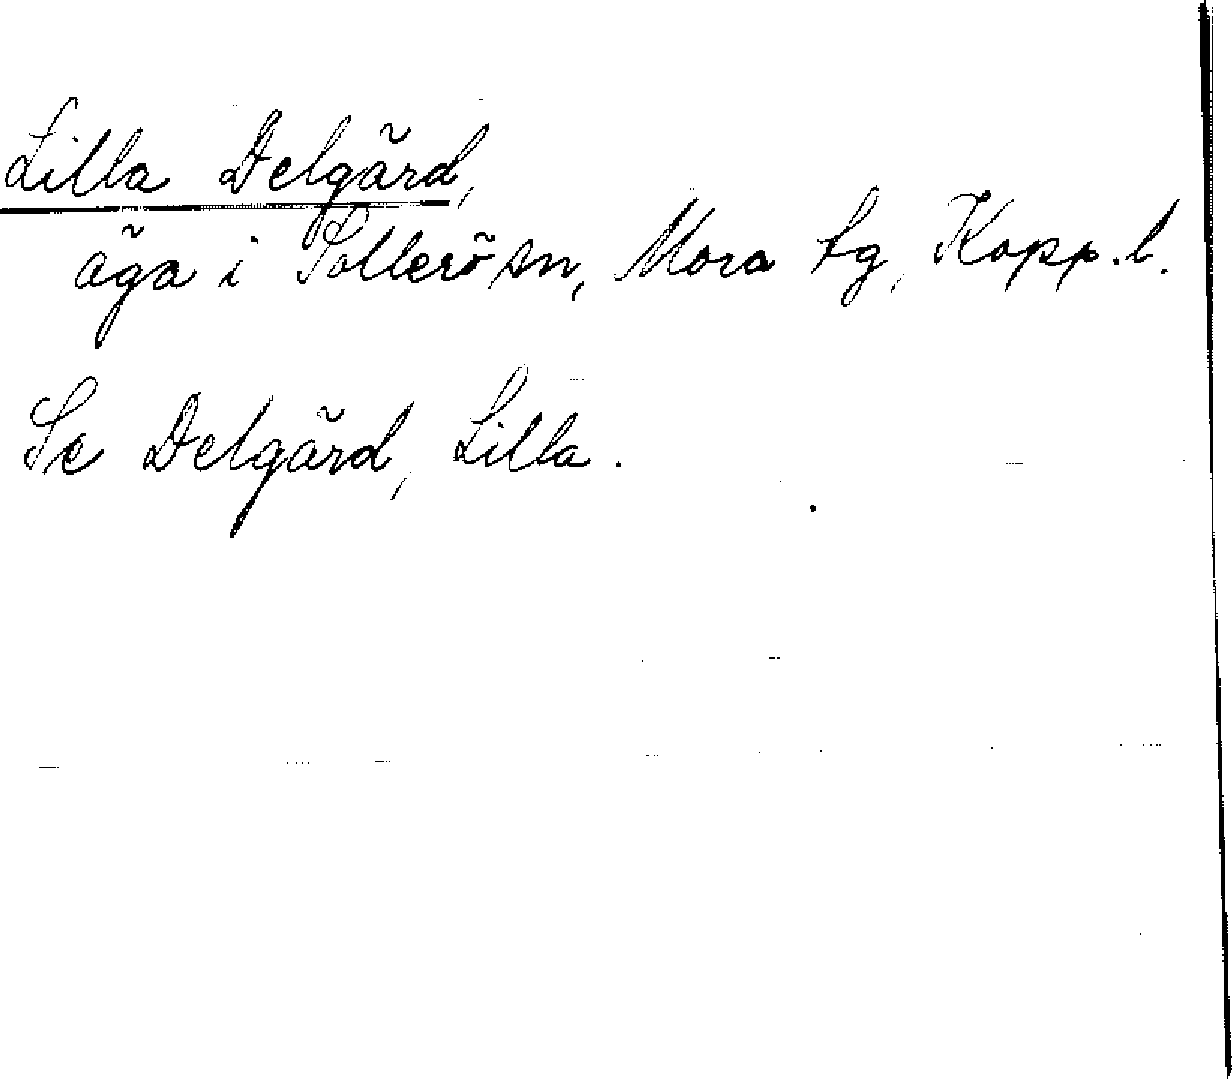 Lilla Delgård,
äga i Sollerö sn, Mora tg, Kopp.l.
Se Delgård, Lilla.